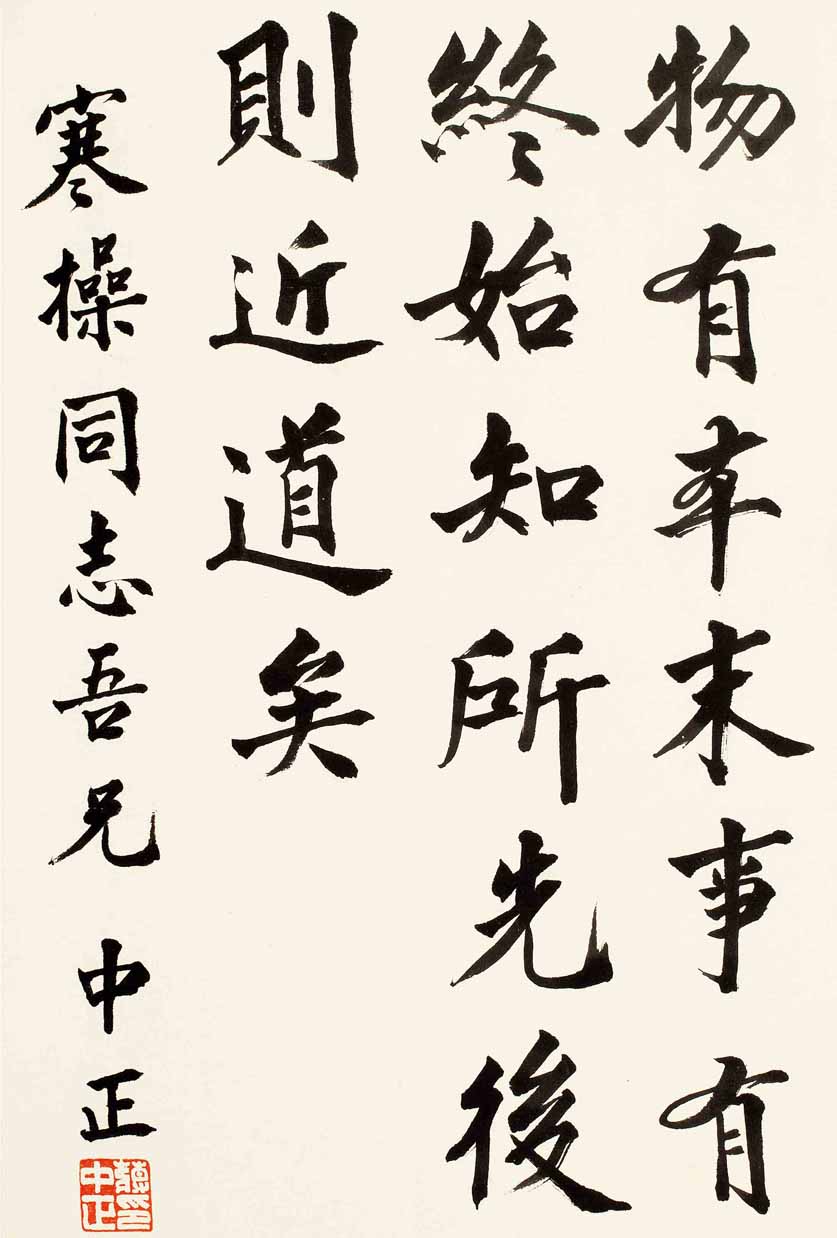 物有本末事有
終始知所先後
則近道矣
寒操同志吾兄 中正
蔣印中正